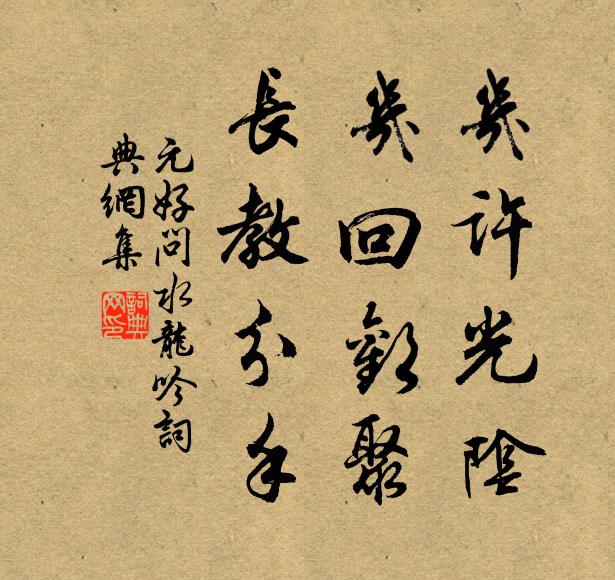 幾許光陰
幾回歡聚
長教分手
元好問水龍吟詞
典網集
詞典
网印